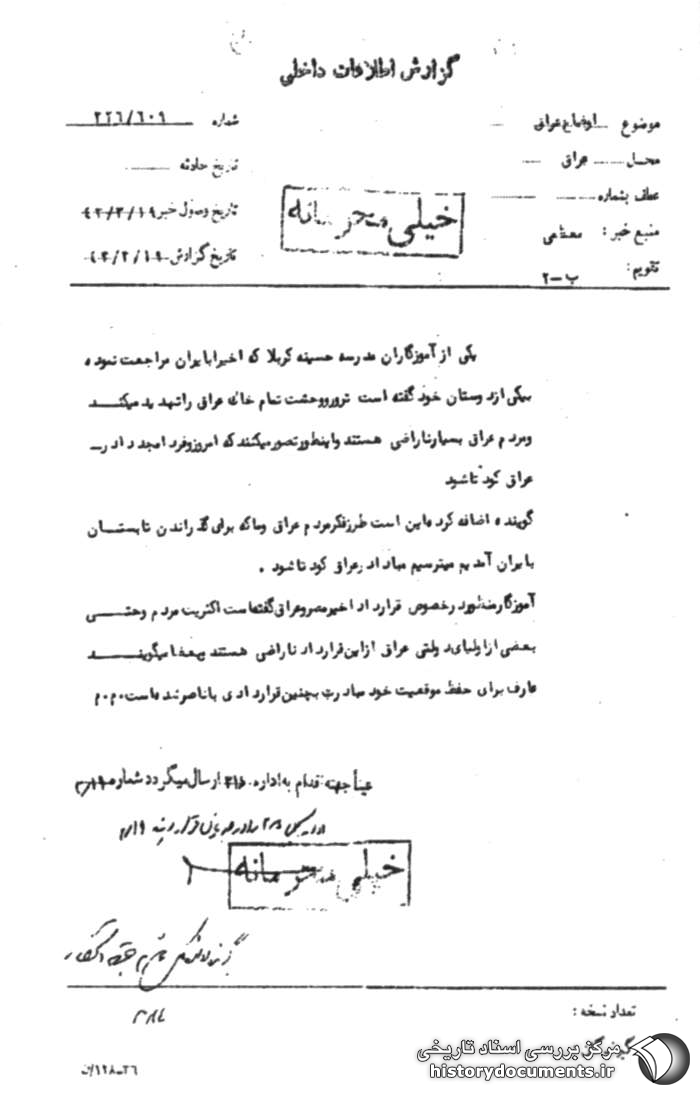 گزارش اطلاعات داخلی
موضوع اوضاع عراق
شماره ۲۲۶/۶۰۹
محل عراق
تاریخ حادثه
عطف بشماره
تاریخ وصول خبر ۴۳/۳/۱۹
منبع خبر :
تاریخ گزارش
تقویم : ب-۲
خیلی محرمانه
یکی از آموزگاران مدرسه حسینه کربلا که اخیرا بایران مراجعت نموده
بیکی از دوستان خود گفته است ترور و وحشت تمام خاک عراق را تهدید میکنــد
ومردم عراق بسیار ناراضی هستند و اینطور تصور میکنند که امروز و فردا مجددا در
عراق کودتا شود
گوینده اضافه کرده این است طرز فکر مردم عراق وما که برای گذراندن تابستــان
بایران آمدیم میترسیم مبادا در عراق کودتا شود .
آموزگار در خصوص قرارداد اخیر مصر و عراق گفته است اکثریت مردم و حتــی
بعضی از اولیای دولتی عراق از این قرارداد ناراضی هستند میگوینــد
عارف برای حفظ موقعیت خود مبادرت بچنین قراردادی با ناصر شده است.م.م
عینا جهت اقدام به اداره ارسال میگردد شماره
خیلی محرمانه
تعداد نسخه :
مرکز بررسی اسناد تاریخی
historydocuments.ir